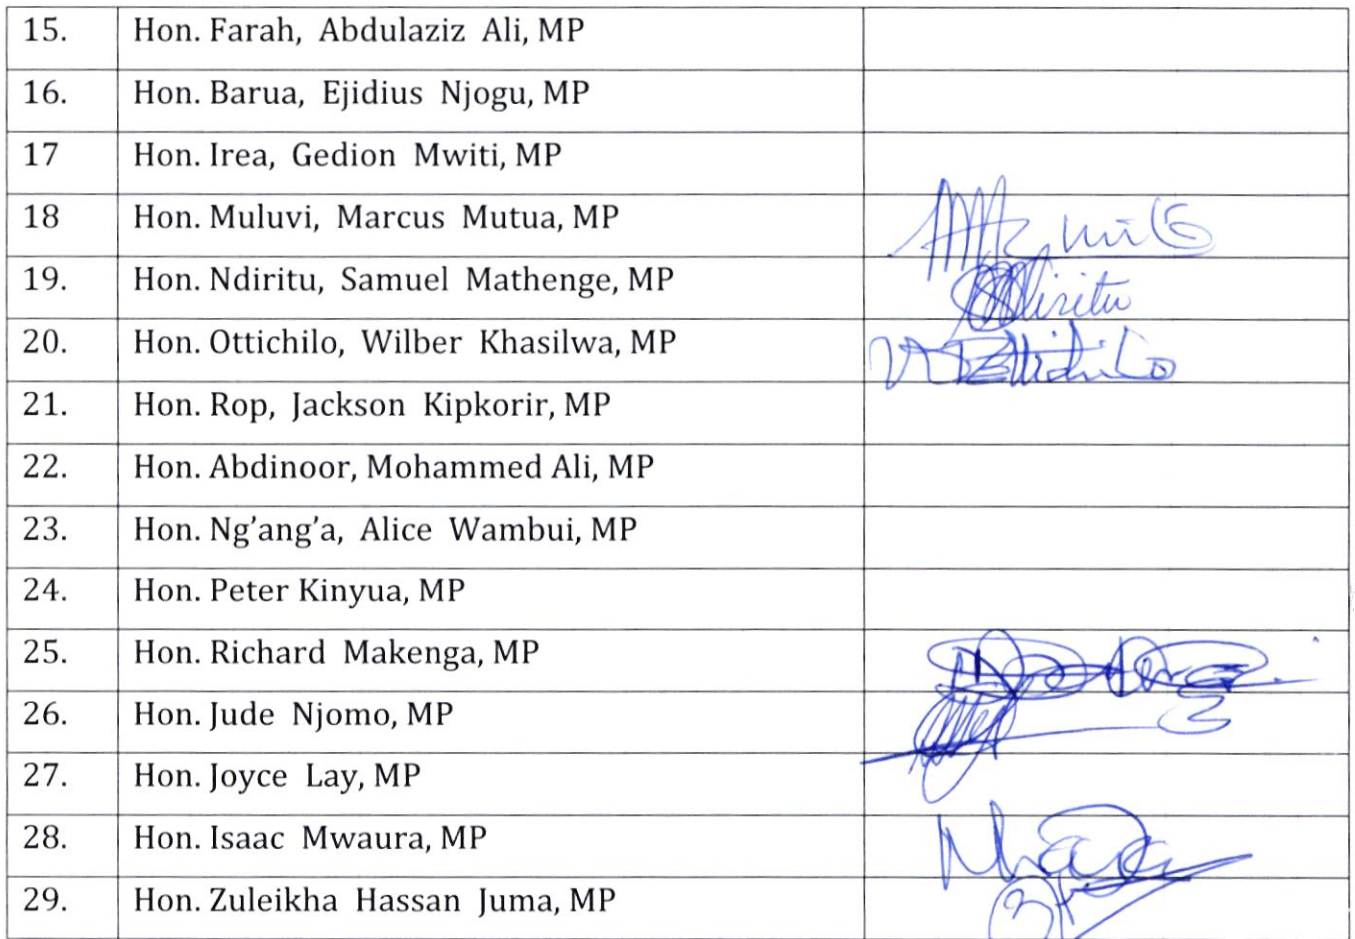 15. Hon. Farah, Abdulaziz Ali, MP
16. Hon. Barua, Ejidius Njogu, MP
17 Hon. Irea, Gedion Mwiti, MP
18 Hon. Muluvi, Marcus Mutua, MP
19. Hon. Ndiritu, Samuel Mathenge, MP
20. Hon. Ottichilo, Wilber Khasilwa, MP
21. Hon. Rop, Jackson Kipkorir, MP
22. Hon. Abdinoor, Mohammed Ali, MP
23. Hon. Ng'ang'a, Alice Wambui, MP
24. Hon. Peter Kinyua, MP
25. Hon. Richard Makenga, MP
26. Hon. Jude Njomo, MP
27. Hon. Joyce Lay, MP
28. Hon. Isaac Mwaura, MP
29. Hon. Zuleikha Hassan Juma, MP